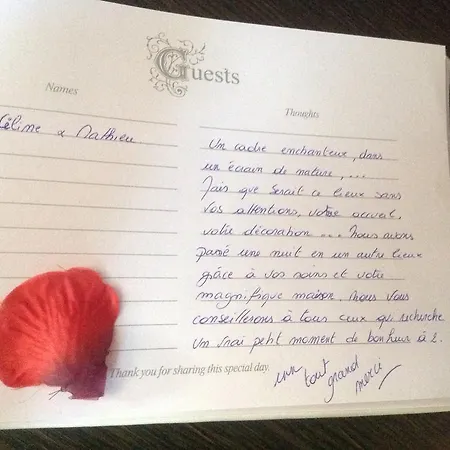 Guests
Names
Thoughts
Céline & Mathieu
Un cadre enchanteur, dans
un écrain de nature, ...
Mais que serait ce lieux sans
vos attentions, votre accueil,
votre décoration ... Nous avons
passé une nuit en un autre lieux
grâce à vos soins et votre
magnifique maison. Nous vous
conseillerons à tous ceux qui recherche
un vrai petit moment de bonheur à 2.
Thank you for sharing this special day.
un tout
grand
merci